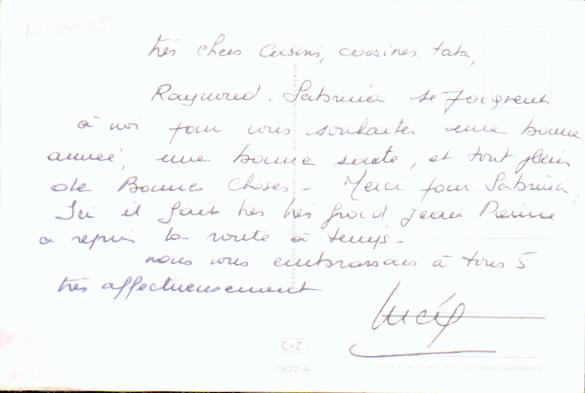 très chers Cousins, cousines, tata,
Raymond, Sabrina se joignent
à moi pour vous souhaiter une bonne
année, une bonne santé, et tout plein
de Bonnes Choses - Merci pour Sabrina.
Ici il fait très très froid Jean Pierre
a repris la route à temps -
nous vous embrassons à tous 5
très affectueusement
C+Z
1822 A